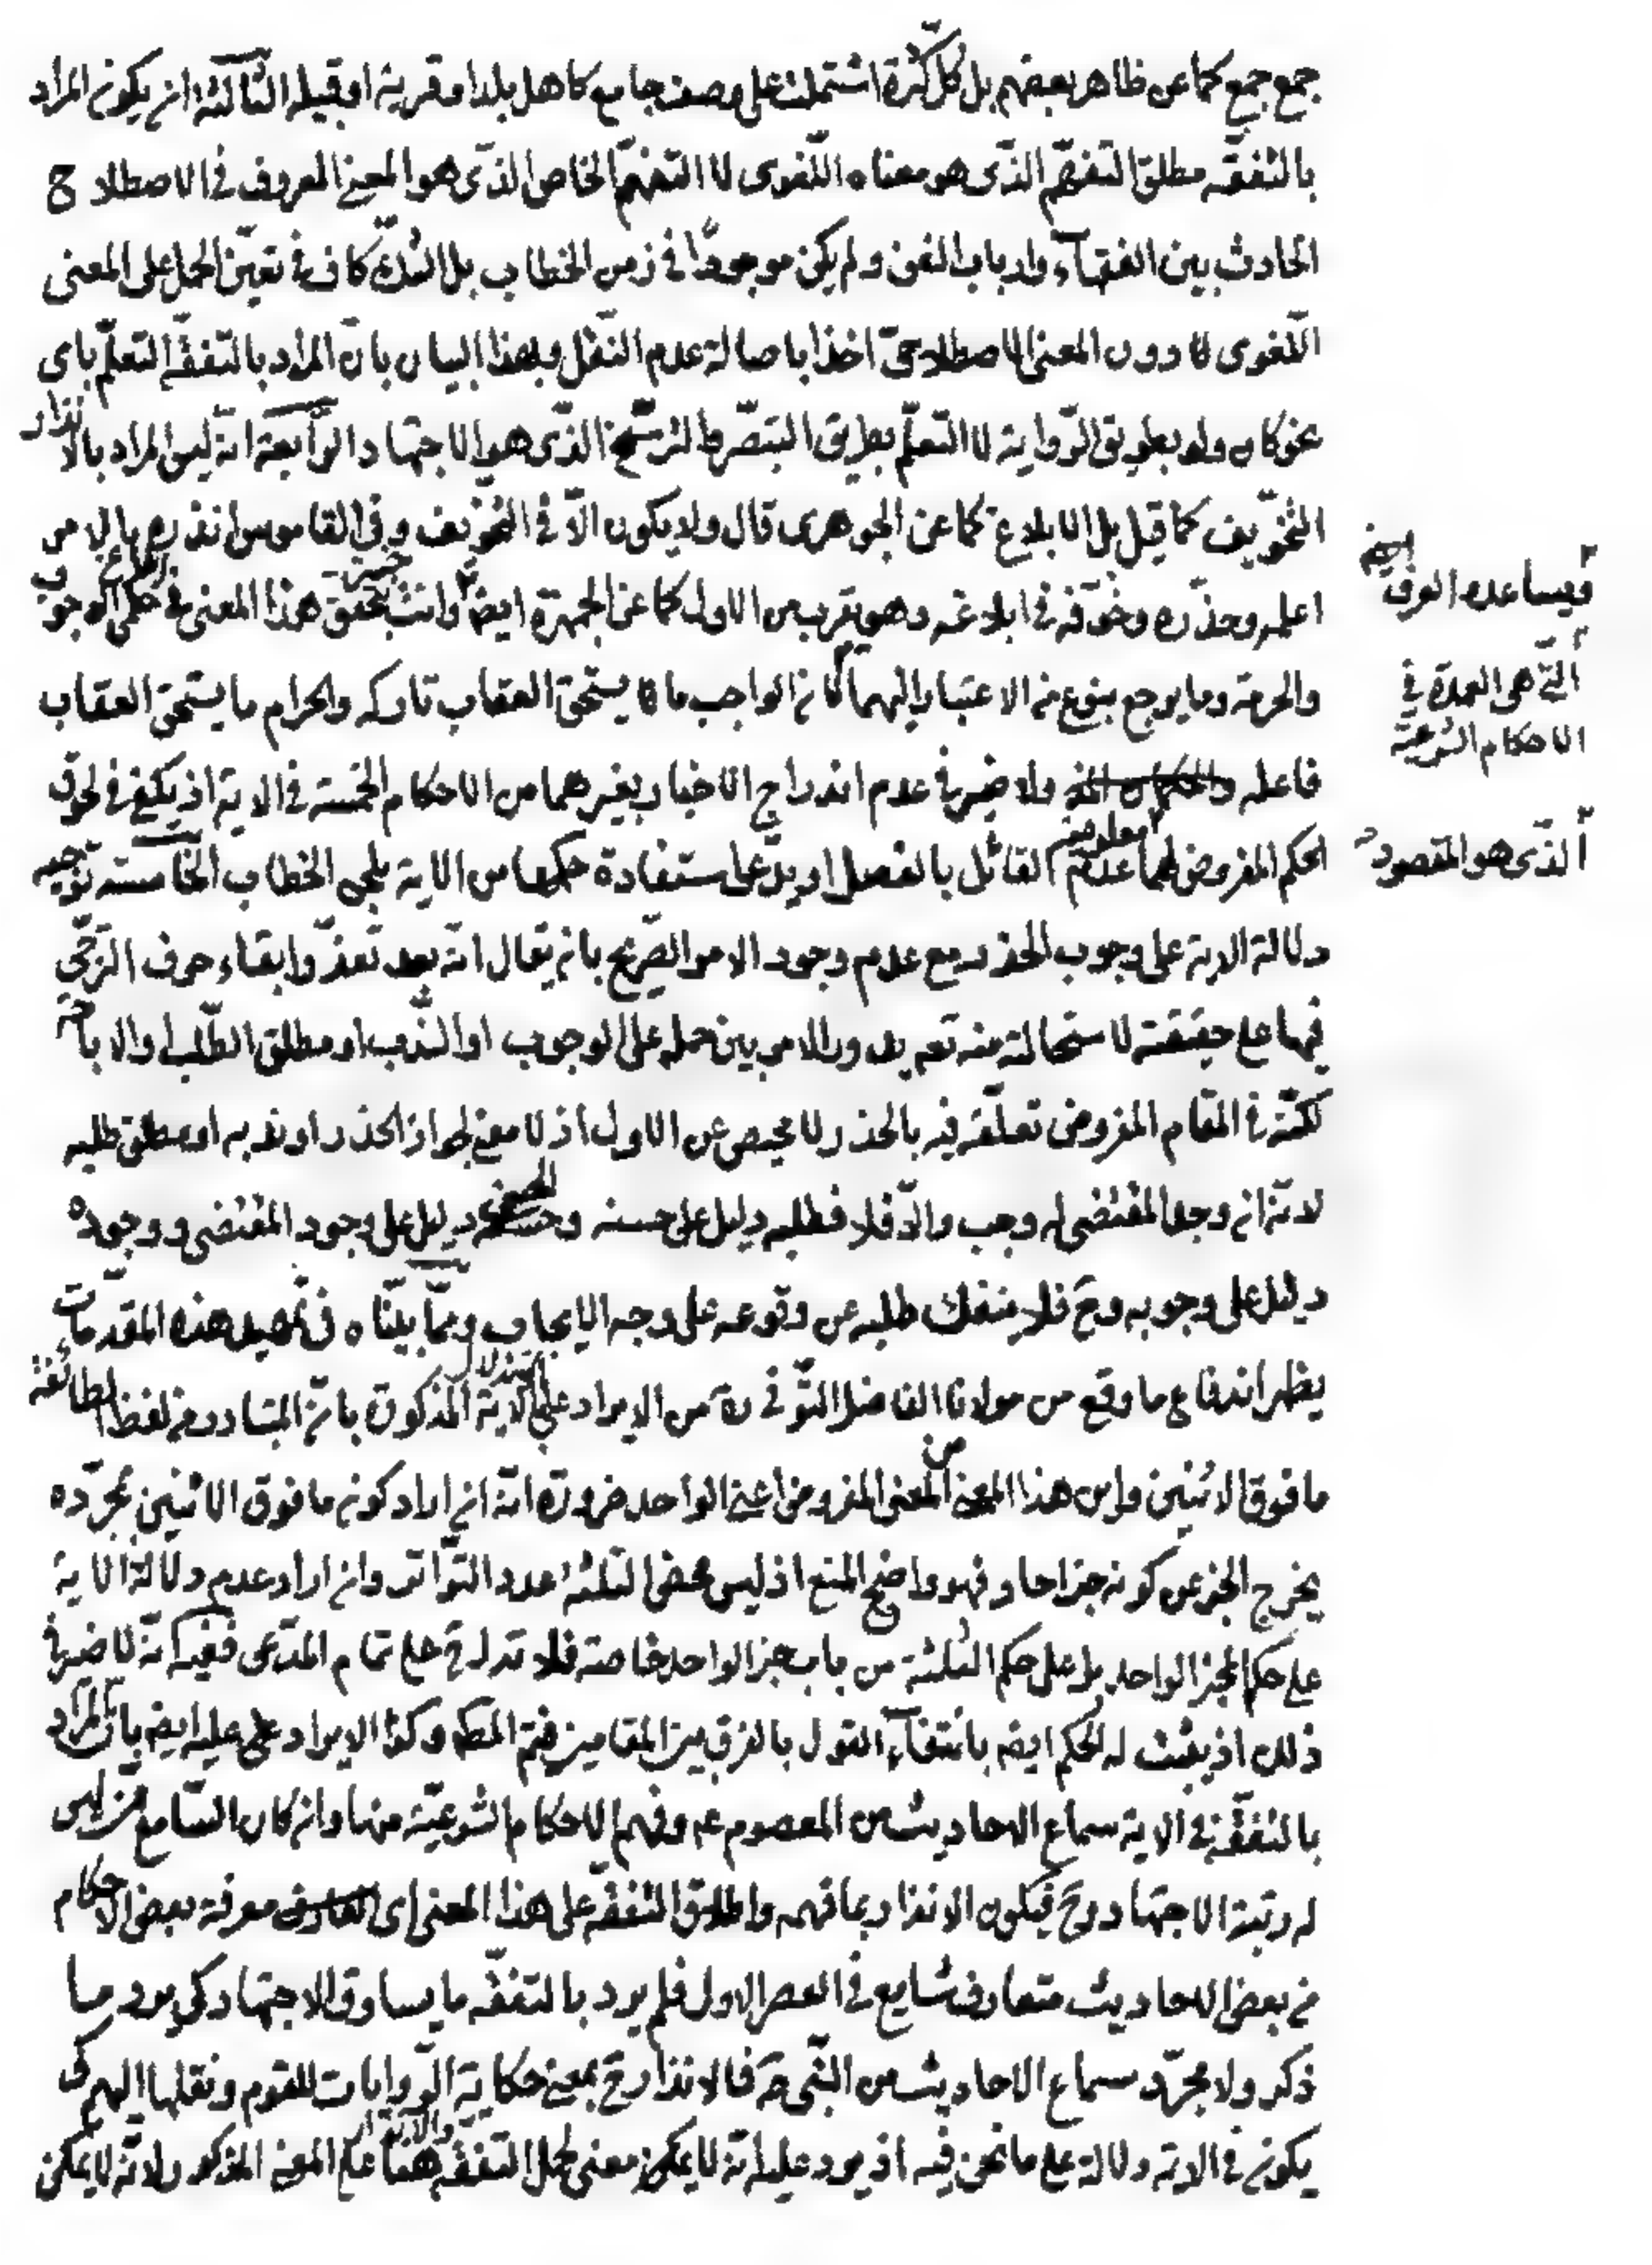 جمع جمع كما عن ظاهر بعضهم بل كل كثرة اشتملت على وصف جامع كاهل بلد او قرية او قبيلة الثالثة ان يكون المراد
بالتفقّه مطلق التفهّم الذّى هو معناه اللّغوى لا التفهّم الخاص الذّى هو المعنى المعروف فى الاصطلاح
الحادث بين الفقهآء وارباب الفن ولم يكن موجودًا فى زمن الخطاب بل الشكّ كاف فى تعيّن الحمل على المعنى
اللّغوى لا دون المعنى الاصطلاحىّ اخذا باصالة عدم النّقل وبهذا البيان بانّ المراد بالتفقّه التعلّم باى
نحو كان ولو بطريق الرّواية لا التعلّم بطريق التبصّر والترشّح الذّى هو الاجتهاد الرّابعة انّه ليس المراد بالانذار
التخوّيف كما قيل بل الابلاغ كما عن الجوهرى قال ولا يكون الّا فى التخويف وفى القاموس انذره بالامر
اعلمه وحذّره وخوّفه فى ابلاغه وهو يقرب من الاول كما عن الجمهرة ايضا وانت خبير بتحقق هذا المعنى فى ابلاغ حكمى الوجوب
ويساعده العرف ايضا
والحرمة وما يرجع بنوع من الاعتبار اليهما لان الواجب ما يستحق العقاب تاركه والحرام ما يستحق العقاب
الّتى هى العمدة فى
الاحكام الشرعيّة
فاعله ولا ضير فى عدم اندراج الاخبار بغيرهما من الاحكام الخمسة فى الاية اذ يكفى فى لحوق
الحكم المفروض لهما معلومية عدم القائل بالفصل او يدّعى استفادة حكمها من الاية بلحن الخطاب الخامسة توجيه
الذّى هو المقصود
دلالة الاية على وجوب الحذر مع عدم وجود الامر الصّريح بان يقال انّه بعد تعذّر ابقاء حرف الترجّى
فيها على حقيقته لاستحالته منه تعم يدور الامر بين حمله على الوجوب او النّدب او مطلق الطّلب او الاباحة
لكنّه فى المقام المفروض تعلّقه فيه بالحذر لا محيص عن الاول اذ لا معنى لجواز الحذر او ندبه او مطلق طلبه
لانّه ان وجد المقتضى له وجب والّا فلا فطلبه دليل على حسنه وحسنه دليل على وجود المقتضى ووجوده
دليل على وجوبه وح فلا ينفك طلبه عن وقوعه على وجه الايجاب وممّا بيّنّاه فى تمهيد هذه المقدّمات
يظهر اندفاع ما وقع من مولانا الفاضل التّونى ره من الايراد على الاستدلال بالاية المذكورة بانّ المتبادر من لفظ الطائفة
ما فوق الاثنين واين هذا المعنى من المعنى المفروض اعنى الواحد ضرورة انّه ان اراد كونه ما فوق الاثنين بمجرّده
يخرج الخبر عن كونه خبرا احاد فهو واضح المنع اذ ليس محض الثلثة عدد التّواتر وان اراد عدم دلالة الاية
على حكم الخبر الواحد بل على حكم الثلثة من باب خبر الواحد خاصة فلا تدل ح على تمام المدّعى ففيه انّه لا ضير فى
ذلك اذ يثبت له الحكم ايضه بانتفآء القول بالفرق بين المقامين فيتم المط وكذا الايراد عليه ايضه بانّ المراد
بالتفقّه فى الاية سماع الاحاديث من المعصوم عم وفهم الاحكام الشرعيّة منها وان كان السّامع من ليس
له رتبة الاجتهاد وح فيكون الانذار بما فهمه واطلاق التفقّه على هذا المعنى اى معرفة بعض الاحكام
من بعض الاحاديث متعارف شايع فى العصر الاول فلم يرد بالتفقّه ما يساوق الاجتهاد كى يرد ما
ذكر ولا مجرّد سماع الاحاديث من النّبى صه فالانذار ح بمعنى حكاية الرّوايات للقوم ونقلها اليهم كى
يكون فى الاية دلالة على ما نحن فيه اذ يرد عليه انّه لا يمكن معنى لحمل التفقّه والانذار هنا على المعنى المذكور لانّه لا يمكن